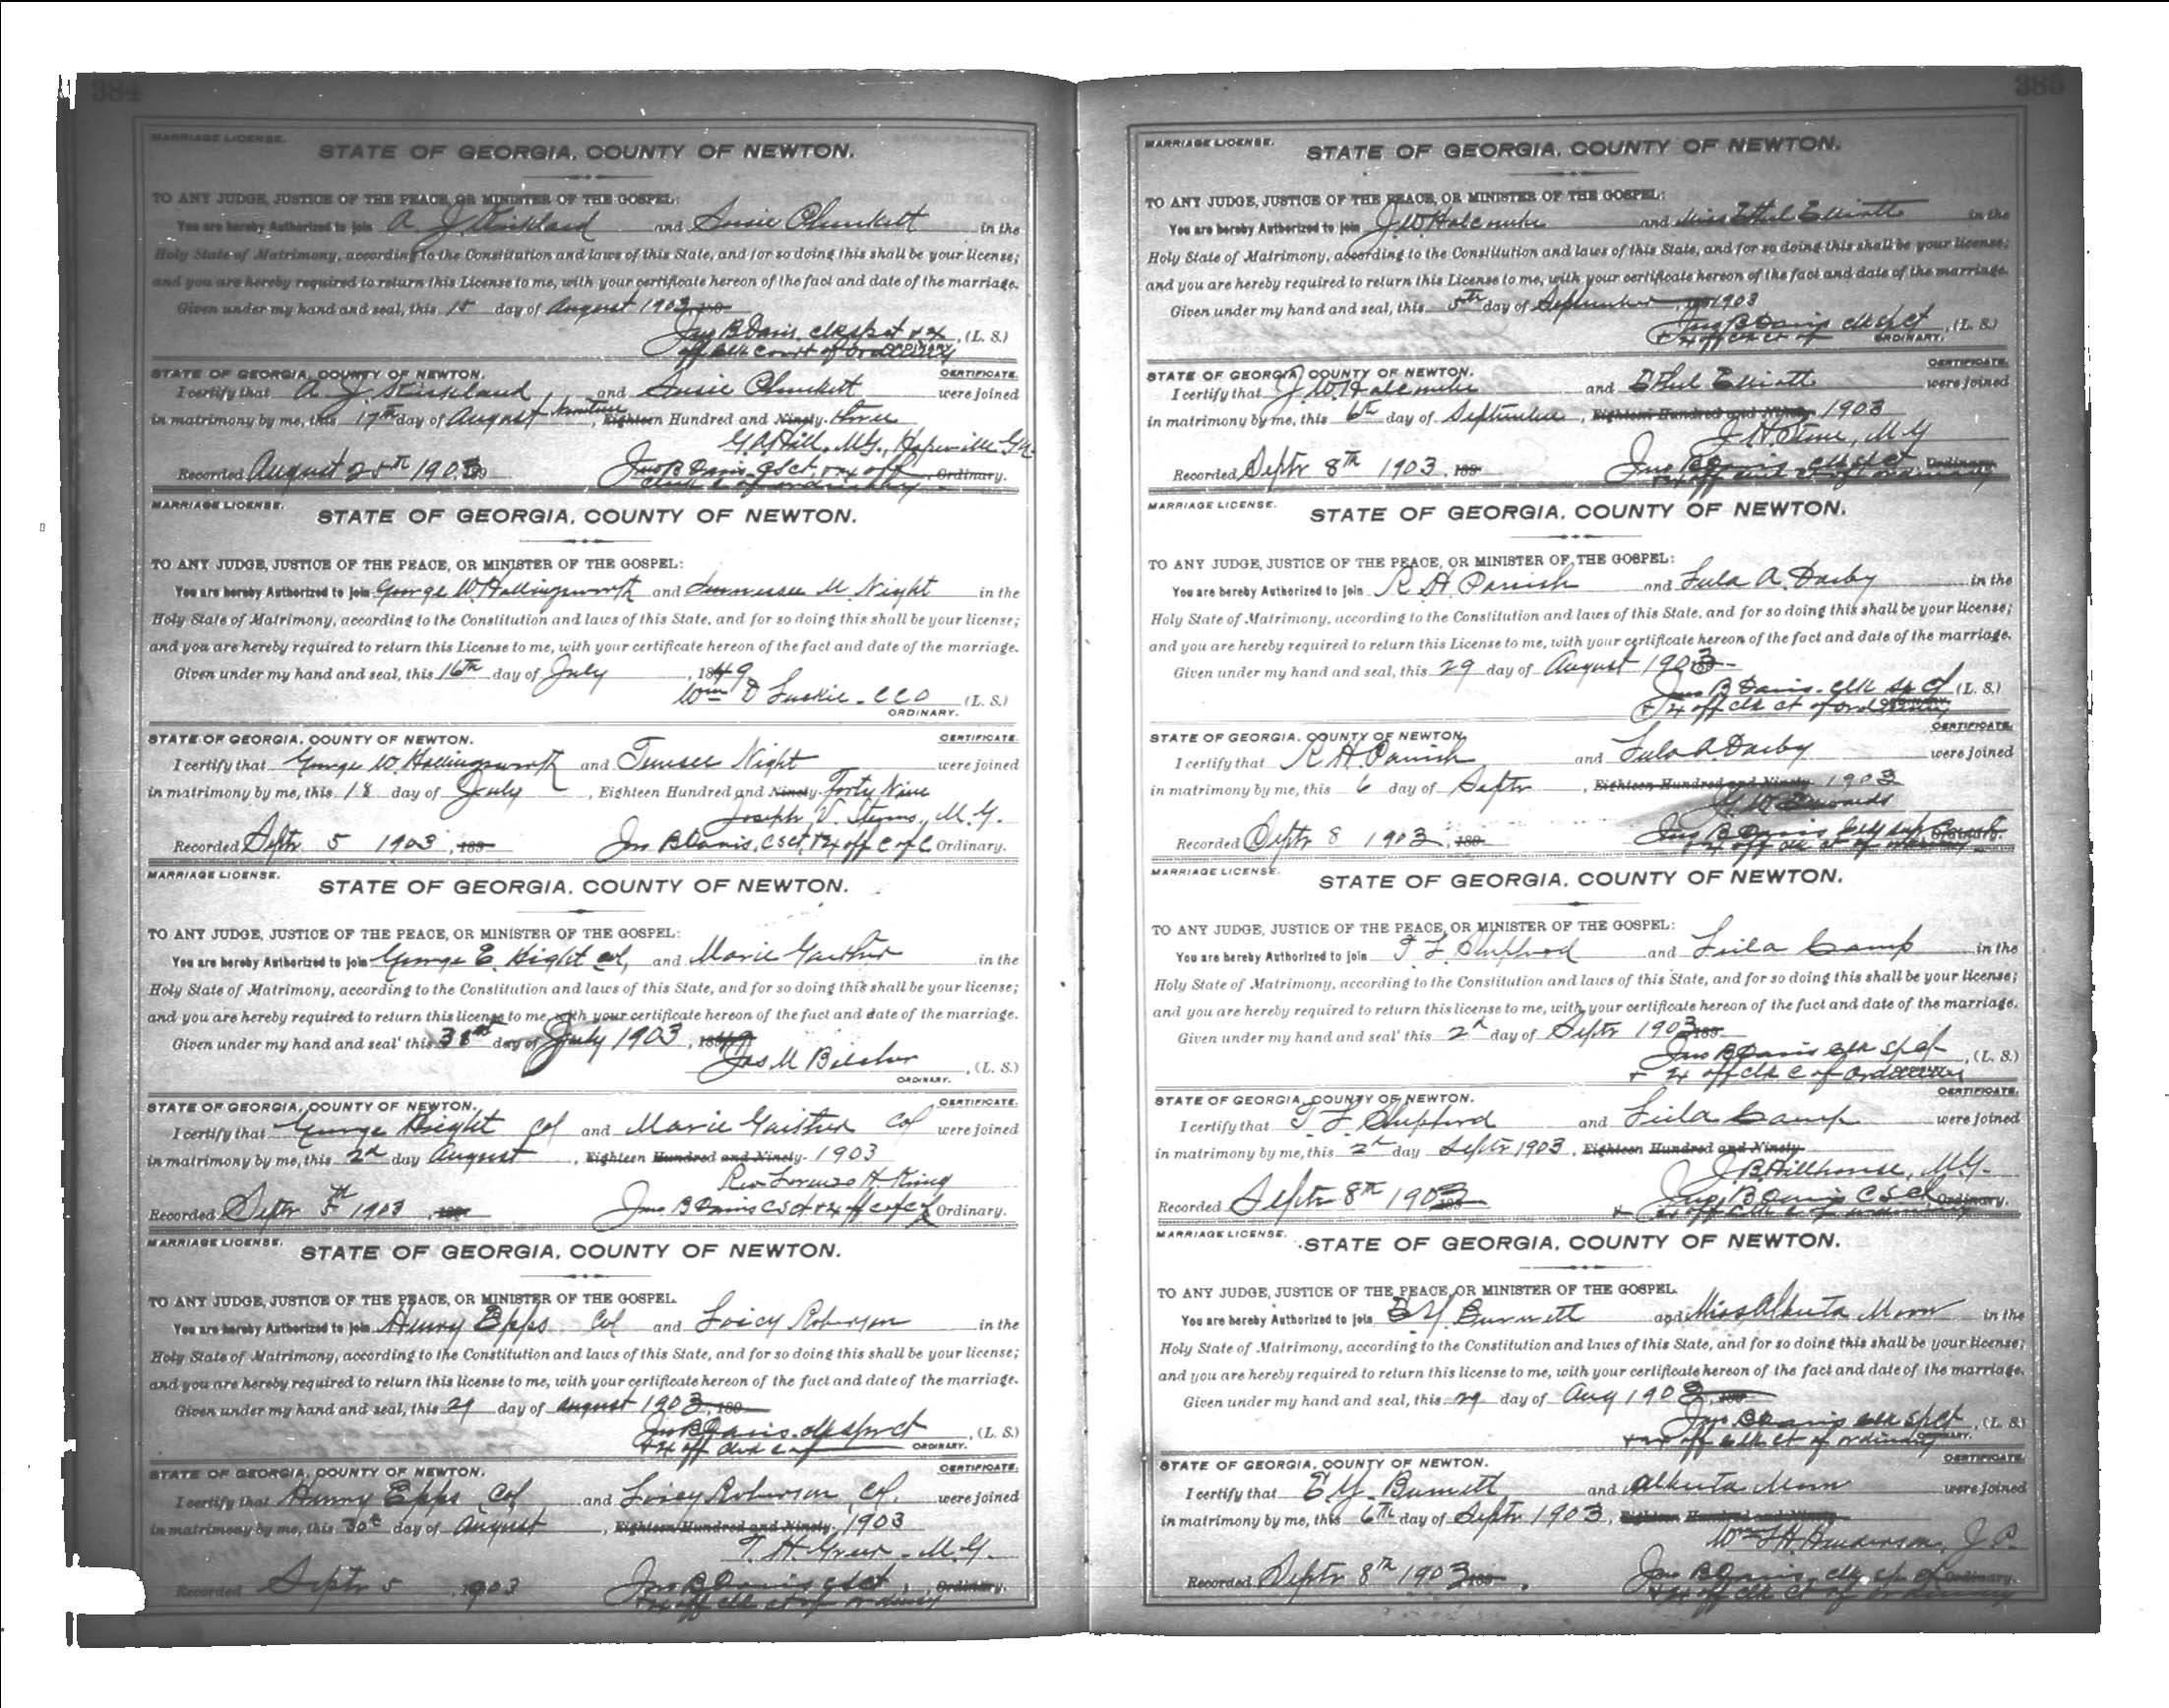 384
MARRIAGE LICENSE.
STATE OF GEORGIA, COUNTY OF NEWTON.
TO ANY JUDGE, JUSTICE OF THE PEACE, OR MINISTER OF THE GOSPEL:
You are hereby Authorized to join A. J. Strickland and Susie Plunkett in the
Holy State of Matrimony, according to the Constitution and laws of this State, and for so doing this shall be your license;
and you are hereby required to return this License to me, with your certificate hereon of the fact and date of the marriage.
Given under my hand and seal, this 15 day of August 1903, 189
Jno B Davis, clk sp ct & ex , (L. S.)
off clk court of Ordinary ORDINARY.
STATE OF GEORGIA, COUNTY OF NEWTON. CERTIFICATE.
I certify that A. J. Strickland and Susie Plunkett were joined
in matrimony by me, this 17th day of August, Nineteen Eighteen Hundred and Ninety- three
G. A. Hill, M.G., Hapeville Ga.
Recorded August 25th 1903. 189 Jno B Davis, C S Ct, & ex off , Ordinary.
Clerk C of Ordinary
MARRIAGE LICENSE.
STATE OF GEORGIA, COUNTY OF NEWTON.
TO ANY JUDGE, JUSTICE OF THE PEACE, OR MINISTER OF THE GOSPEL:
You are hereby Authorized to join George W. Hollingsworth and M. Night in the
Holy State of Matrimony, according to the Constitution and laws of this State, and for so doing this shall be your license;
and you are hereby required to return this License to me, with your certificate hereon of the fact and date of the marriage.
Given under my hand and seal, this 16th day of July , 1849
Wm D Luckie - CCO (L. S.)
ORDINARY.
STATE OF GEORGIA, COUNTY OF NEWTON. CERTIFICATE.
I certify that George W. Hollingsworth and Night were joined
in matrimony by me, this 18 day of July , Eighteen Hundred and Ninety- Forty Nine
Joseph V. M. G.
Recorded Septr 5 1903 , 189 Jno B Davis, C S ct, & ex off C of C Ordinary.
MARRIAGE LICENSE.
STATE OF GEORGIA, COUNTY OF NEWTON.
TO ANY JUDGE, JUSTICE OF THE PEACE, OR MINISTER OF THE GOSPEL:
You are hereby Authorized to join George E. Hight col, and Marie Gaither in the
Holy State of Matrimony, according to the Constitution and laws of this State, and for so doing this shall be your license;
and you are hereby required to return this license to me, with your certificate hereon of the fact and date of the marriage.
Given under my hand and seal' this day of July 1903 , 1849
Jas M Belcher , (L. S.)
ORDINARY.
STATE OF GEORGIA, COUNTY OF NEWTON. CERTIFICATE.
I certify that George Hight Col and Marie Gaither Col were joined
in matrimony by me, this 2d day August , Eighteen Hundred and Ninety- 1903
Rev Lorenzo H. King
Recorded Septr 5th 1903 , 189 Jno B Davis C S ct & ex off C of C Ordinary.
MARRIAGE LICENSE.
STATE OF GEORGIA, COUNTY OF NEWTON.
TO ANY JUDGE, JUSTICE OF THE PEACE, OR MINISTER OF THE GOSPEL.
You are hereby Authorized to join Henry Epps Col and Loicy Roberson in the
Holy State of Matrimony, according to the Constitution and laws of this State, and for so doing this shall be your license;
and you are hereby required to return this license to me, with your certificate hereon of the fact and date of the marriage.
Given under my hand and seal, this 29 day of August 1903, 189
Jno B Davis, clk spr ct , (L. S.)
& ex off clk c of ORDINARY.
STATE OF GEORGIA, COUNTY OF NEWTON. CERTIFICATE.
I certify that Henry Epps, Col, and Loicy Roberson, Col. were joined
in matrimony by me, this 30th day of August , Eighteen Hundred and Ninety- 1903
T. H. Greer - M. G.
Recorded Septr 5 , 1903 Jno B Davis C S ct , Ordinary.
& ex off clk ct of ordinary
385
MARRIAGE LICENSE.
STATE OF GEORGIA, COUNTY OF NEWTON.
TO ANY JUDGE, JUSTICE OF THE PEACE, OR MINISTER OF THE GOSPEL:
You are hereby Authorized to join J. W. Halcombe and Miss Ethel Elliott in the
Holy State of Matrimony, according to the Constitution and laws of this State, and for so doing this shall be your license;
and you are hereby required to return this License to me, with your certificate hereon of the fact and date of the marriage.
Given under my hand and seal, this 5th day of September, 1903
Jno B Davis clk S Ct , (L. S.)
& ex off clk ct of ORDINARY.
STATE OF GEORGIA, COUNTY OF NEWTON. CERTIFICATE.
I certify that J. W. Halcombe and Ethel Elliott were joined
in matrimony by me, this 6th day of September , Eighteen Hundred and Ninety- 1903
J. H. Stone, M.G
Recorded Septr 8th 1903. 189 Jno B Davis clk S Ct Ordinary.
& ex off clk ct of ordinary
MARRIAGE LICENSE.
STATE OF GEORGIA, COUNTY OF NEWTON.
TO ANY JUDGE, JUSTICE OF THE PEACE, OR MINISTER OF THE GOSPEL:
You are hereby Authorized to join R. H. Parrish and Lula A. Darby in the
Holy State of Matrimony, according to the Constitution and laws of this State, and for so doing this shall be your license;
and you are hereby required to return this License to me, with your certificate hereon of the fact and date of the marriage.
Given under my hand and seal, this 29 day of August 1903
Jno B Davis - clk sp ct (L. S.)
& ex off clk ct of ordinary
STATE OF GEORGIA, COUNTY OF NEWTON. CERTIFICATE.
I certify that R. H. Parrish and Lula A. Darby were joined
in matrimony by me, this 6 day of Septr , Eighteen Hundred and Ninety- 1903
G. W. Edmonds
Recorded Septr 8 1903. 189 Jno B Davis clk sup Court Ordinary.
& ex off clk ct of ordinary
MARRIAGE LICENSE.
STATE OF GEORGIA, COUNTY OF NEWTON.
TO ANY JUDGE, JUSTICE OF THE PEACE, OR MINISTER OF THE GOSPEL:
You are hereby Authorized to join T. F. Shepherd and Leila Camp in the
Holy State of Matrimony, according to the Constitution and laws of this State, and for so doing this shall be your license;
and you are hereby required to return this license to me, with your certificate hereon of the fact and date of the marriage.
Given under my hand and seal' this 2d day of Septr 1903 189
Jno B Davis clk sp ct , (L. S.)
& ex off clk c of Ordinary
STATE OF GEORGIA, COUNTY OF NEWTON. CERTIFICATE.
I certify that T. F. Shepherd and Leila Camp were joined
in matrimony by me, this 2d day Septr 1903 , Eighteen Hundred and Ninety-
J. B. Hillhouse, M.G.
Recorded Septr 8th 1903 189 Jno B Davis C S Ct Ordinary.
& ex off clk c of ordinary
MARRIAGE LICENSE.
STATE OF GEORGIA, COUNTY OF NEWTON.
TO ANY JUDGE, JUSTICE OF THE PEACE, OR MINISTER OF THE GOSPEL.
You are hereby Authorized to join E. Y. Burnett and Miss Alberta Moon in the
Holy State of Matrimony, according to the Constitution and laws of this State, and for so doing this shall be your license;
and you are hereby required to return this license to me, with your certificate hereon of the fact and date of the marriage.
Given under my hand and seal, this 29 day of Aug 1903, 189
Jno B Davis clk sp ct , (L. S.)
& ex off clk ct of ordinary ORDINARY.
STATE OF GEORGIA, COUNTY OF NEWTON. CERTIFICATE.
I certify that E. Y. Burnett and Alberta Moon were joined
in matrimony by me, this 6th day of Septr 1903, Eighteen Hundred and Ninety
Wm H Henderson, J. P.
Recorded Septr 8th 1903 189 . Jno B Davis, clk sp ct Ordinary.
& ex off clk ct of ordinary